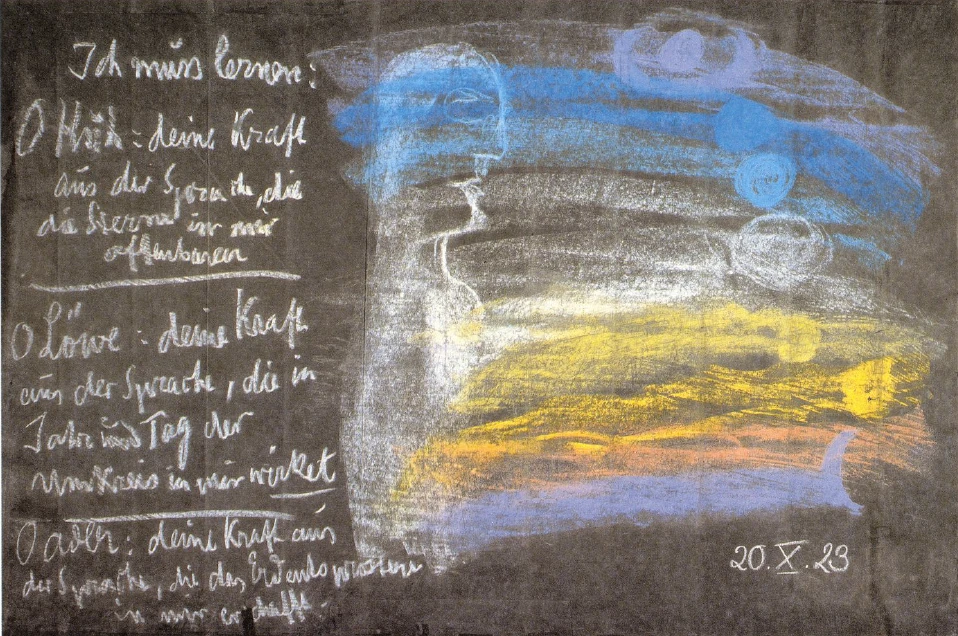 Ich muss lernen:
O Kuh: deine Kraft
aus der Sprache, die
die Sterne in mir
offenbaren
O Löwe: deine Kraft
aus der Sprache, die in
Jahr und Tag der
Umkreis in mir wirket
O adler: deine Kraft aus
der Sprache, die das Erdentsprossene
in mir erschafft.
20.X.23